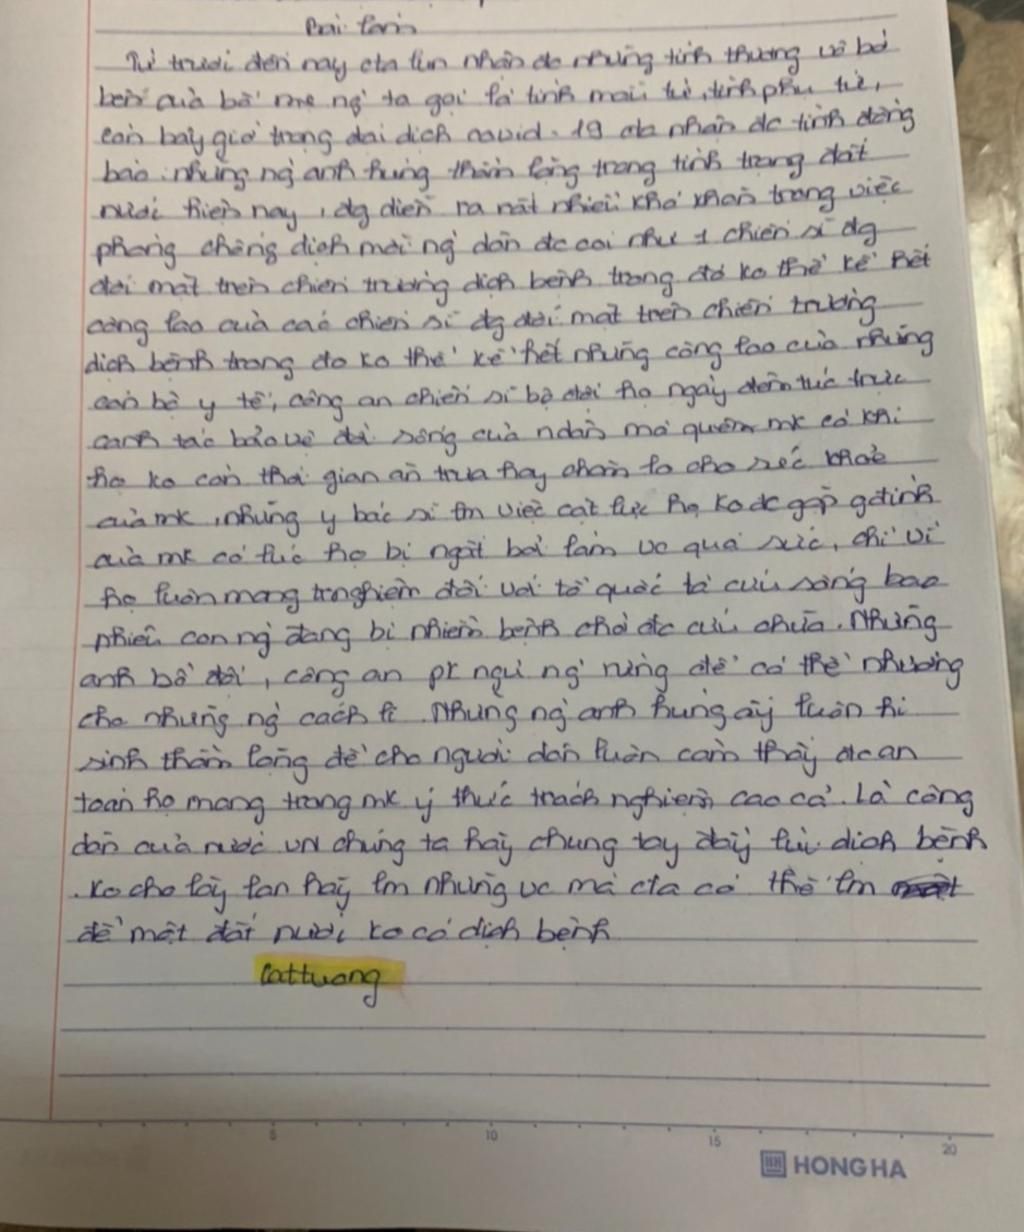 Bài làm
Từ trước đến nay cta lun nhận đc những tình thương vô bờ
bến của bố mẹ ng' ta gọi là tình mẫu tử, tình phụ tử,
còn bây giờ trong đai dịch covid-19 cta nhận đc tình đồng
bào. những ng' anh hùng thầm lặng trong tình trạng đất
nước hiện nay, đg diễn ra rất nhiều khó khăn trong việc
phòng chống dịch mỗi ng' dân đc coi như 1 chiến sĩ đg
đối mặt trên chiến trường dịch bệnh trong đó ko thể kể hết
công lao của các chiến sĩ đg đối mặt trên chiến trường
dịch bệnh trong đó ko thể kể hết những công lao của những
cán bộ y tế, công an chiến sĩ bộ đội họ ngày đêm túc trực
canh tác bảo vệ đời sống của ndân mà quên mk có khi
họ ko còn thời gian ăn trưa hay chăm lo cho sức khoẻ
của mk, những y bác sĩ lm việc cật lực họ ko đc gặp gđình
của mk có lúc họ bị ngất bởi làm vc quá sức, chỉ vì
họ luôn mang trnghiệm đối với tổ quốc là cứu sống bao
nhiêu con ng' đang bị nhiễm bệnh chờ đc cứu chữa. Những
anh bồ đội, công an pk ngủ ng' rừng để có thể nhường
cho những ng' cách li. Những ng' anh hùng ấy luôn hi
sinh thầm lặng để cho người dân luôn cảm thấy đc an
toàn họ mang trong mk ý thức trách nghiệm cao cả. Là công
dân của nước VN chúng ta hãy chung tay đẩy lùi dịch bệnh
. ko cho lây lan hãy lm những vc mà cta có thể lm
để một đất nước ko có dịch bệnh
Cattuong
5 10 15 20
HONG HA